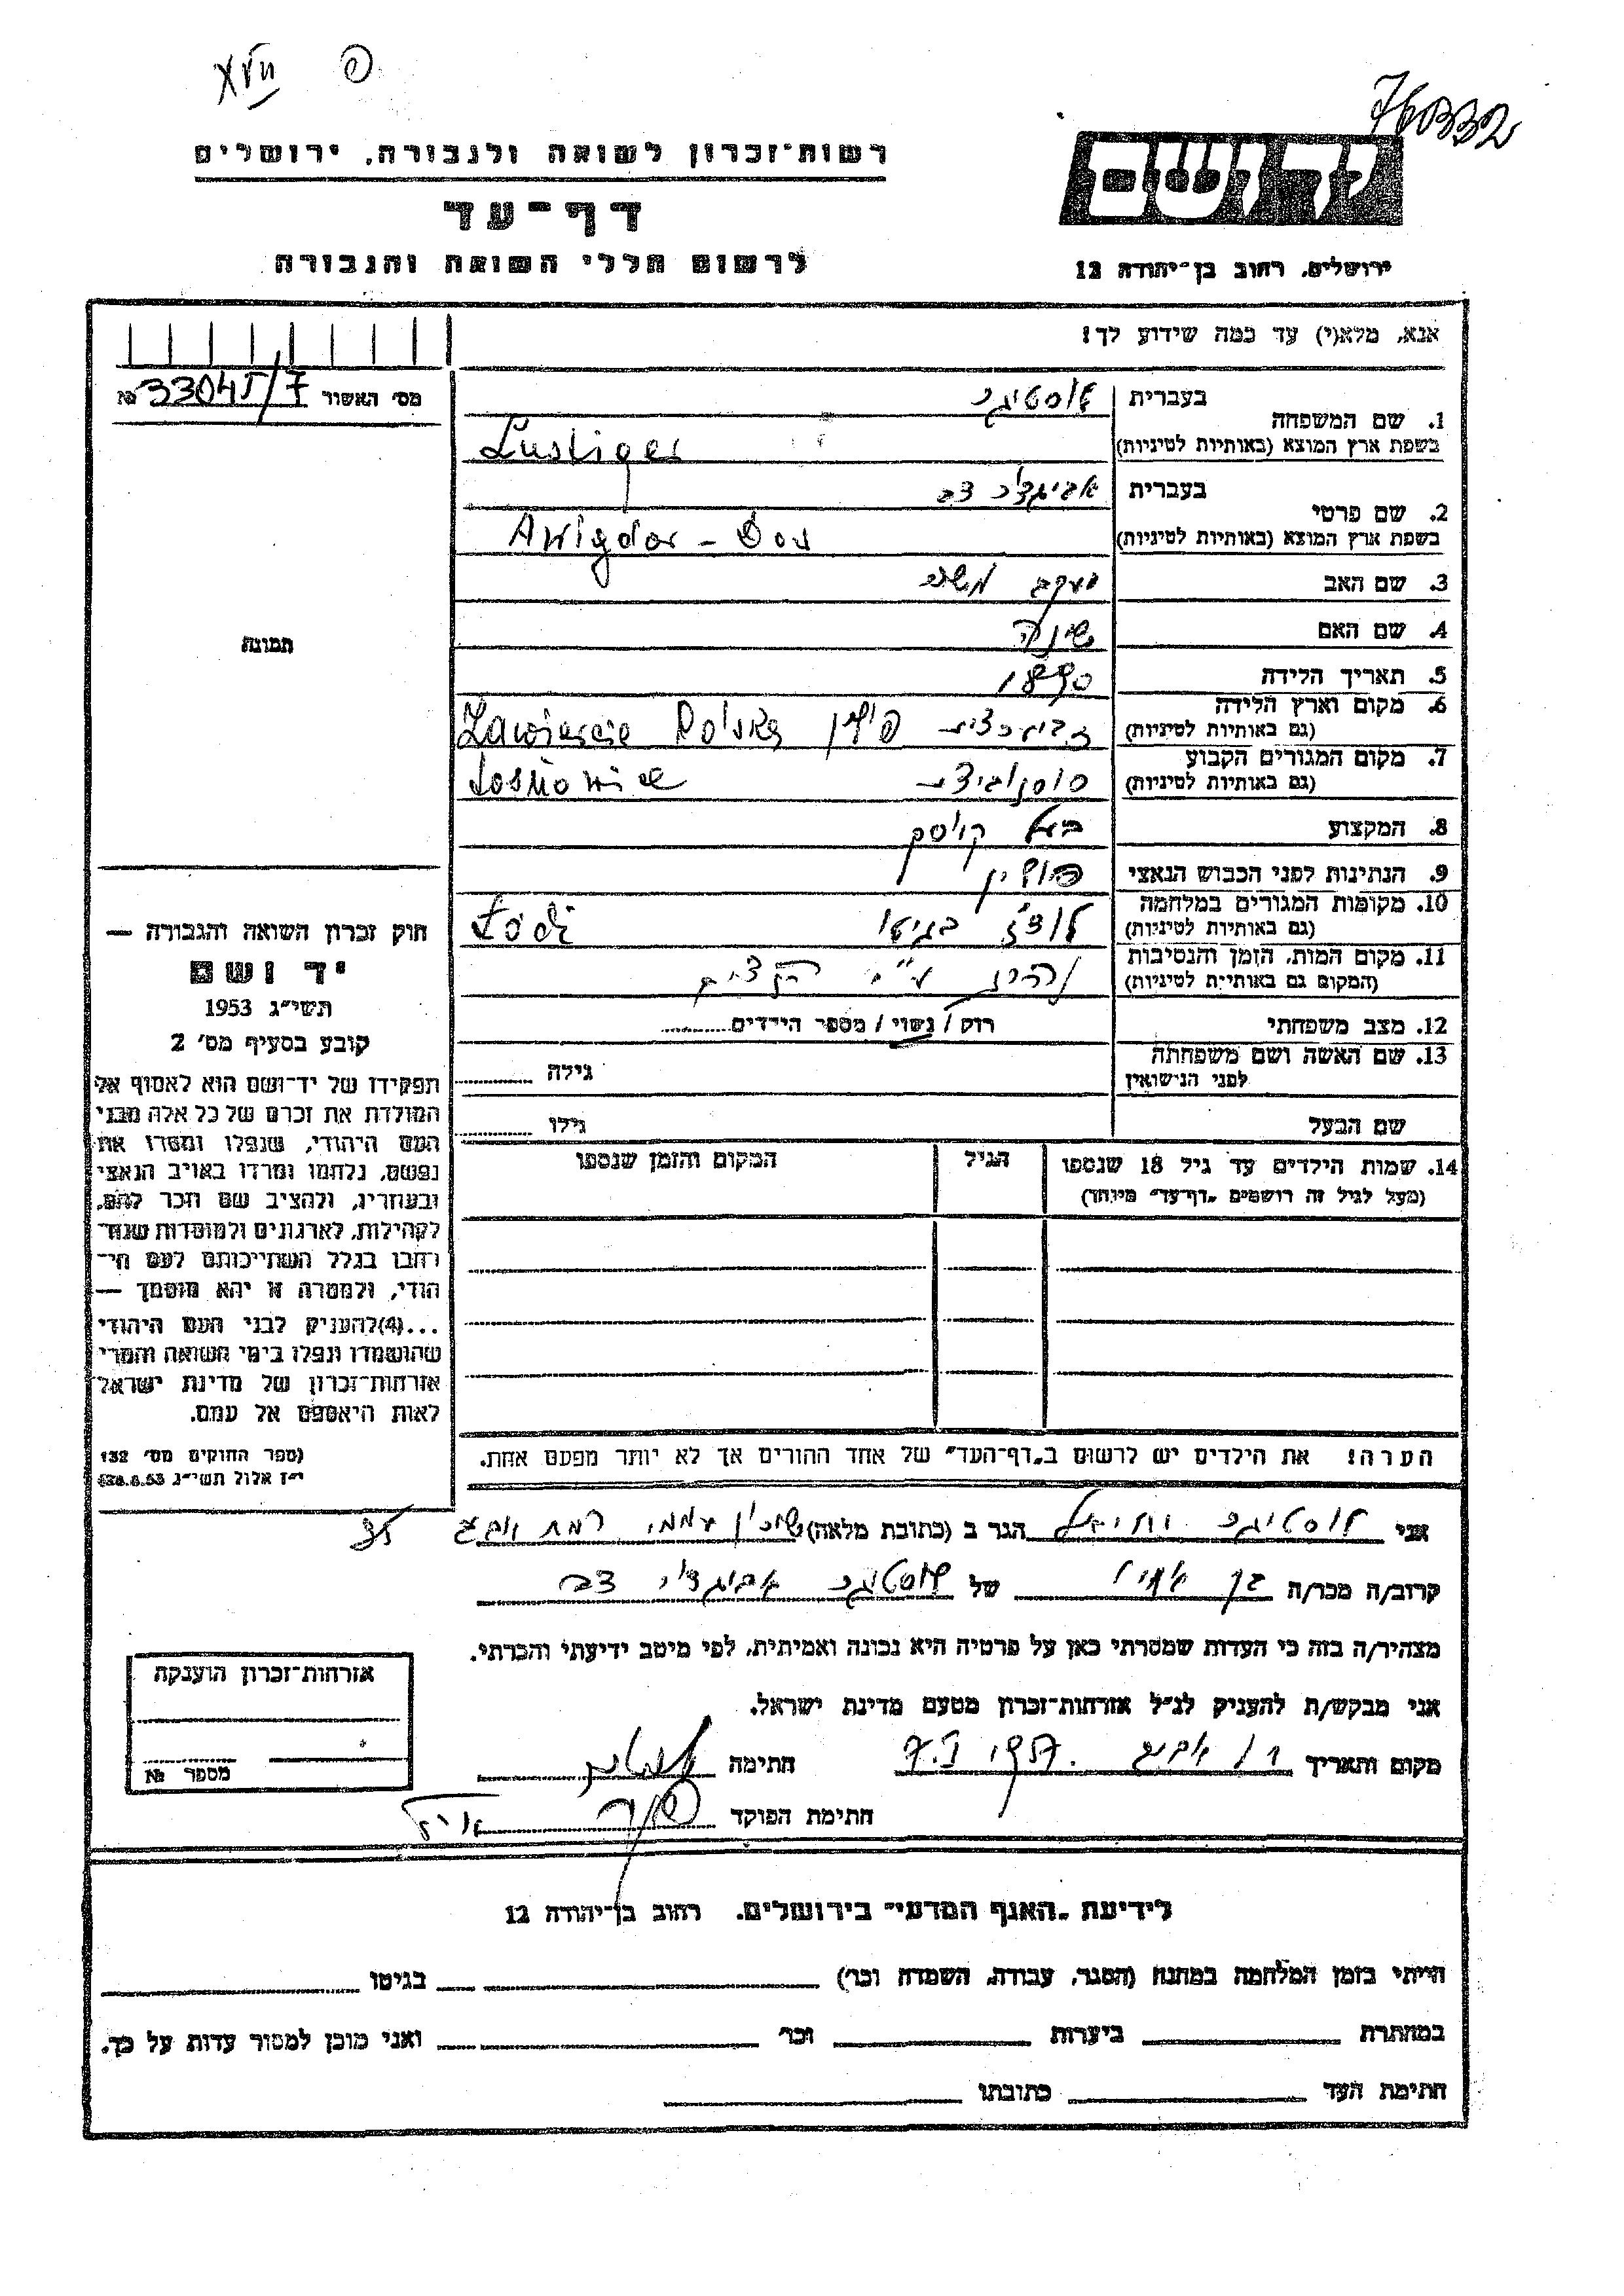 76332
רשות־זכרון לשואה ולגבורה, ירושלים
דף־עד
לרשום חללי השואה והגבורה
ידושם
ירושלים, רחוב בן־יהודה 12
אנא, מלא(י) עד כמה שידוע לך!
מס׳ האשור 33045/7 №
תמונה
1. שם המשפחה
בעברית לוסטיגר
בשפת ארץ המוצא (באותיות לטיניות) Lustiger
2. שם פרטי
בעברית אביגדור דב
בשפת ארץ המוצא (באותיות לטיניות) Awigdor - Dov
3. שם האב יעקב משה
4. שם האם
5. תאריך הלידה 1890
6. מקום וארץ הלידה
(גם באותיות לטיניות) פולין Zawiercie Polska
7. מקום המגורים הקבוע
(גם באותיות לטיניות) סוסנוביץ Sosnowice
8. המקצוע בעל
9. הנתינות לפני הכבוש הנאצי פולין
10. מקומות המגורים במלחמה
(גם באותיות לטיניות) לודז׳ בגיטו Łódź
11. מקום המות, הזמן והנסיבות
(המקום גם באותיות לטיניות) נהרג ע״י
12. מצב משפחתי רווק / נשוי / מספר הילדים
13. שם האשה ושם משפחתה
לפני הנישואין גילה
שם הבעל גילו
14. שמות הילדים עד גיל 18 שנספו הגיל המקום והזמן שנספו
(מעל לגיל זה רושמים „דף־עד״ מיוחד)
הערה! את הילדים יש לרשום ב„דף־העד״ של אחד ההורים אך לא יותר מפעם אחת.
חוק זכרון השואה והגבורה —
יד ושם
תשי״ג 1953
קובע בסעיף מס׳ 2
תפקידו של יד־ושם הוא לאסוף אל
המולדת את זכרם של כל אלה מבני
העם היהודי, שנפלו ומסרו את
נפשם, נלחמו ומרדו באויב הנאצי
ובעוזריו, ולהציב שם וזכר להם,
לקהילות, לארגונים ולמוסדות שנח־
רבו בגלל השתייכותם לעם הי־
הודי, ולמטרה זו יהא מוסמך —
...(4)להעניק לבני העם היהודי
שהושמדו ונפלו בימי השואה והמרי
אזרחות־זכרון של מדינת ישראל
לאות היאספם אל עמם.
(ספר החוקים מס׳ 132
י״ז אלול תשי״ג 28.8.53)
אני לוסטיגר הגר ב (כתובת מלאה) שיכון עממי רמת
קרוב/ה מכר/ה בן אחיו של לוסטיגר אביגדור דב
מצהיר/ה בזה כי העדות שמסרתי כאן על פרטיה היא נכונה ואמיתית, לפי מיטב ידיעתי והכרתי.
אני מבקש/ת להעניק לנ״ל אזרחות־זכרון מטעם מדינת ישראל.
מקום ותאריך תל אביב 1957 חתימה
חתימת הפוקד
אזרחות־זכרון הוענקה
מספר №
לידיעת „האגף המדעי״ בירושלים. רחוב בן־יהודה 12
הייתי בזמן המלחמה במחנה (הסגר, עבודה, השמדה וכו׳) בגיטו
במחתרת ביערות וכו׳ ואני מוכן למסור עדות על כך.
חתימת העד כתובתו